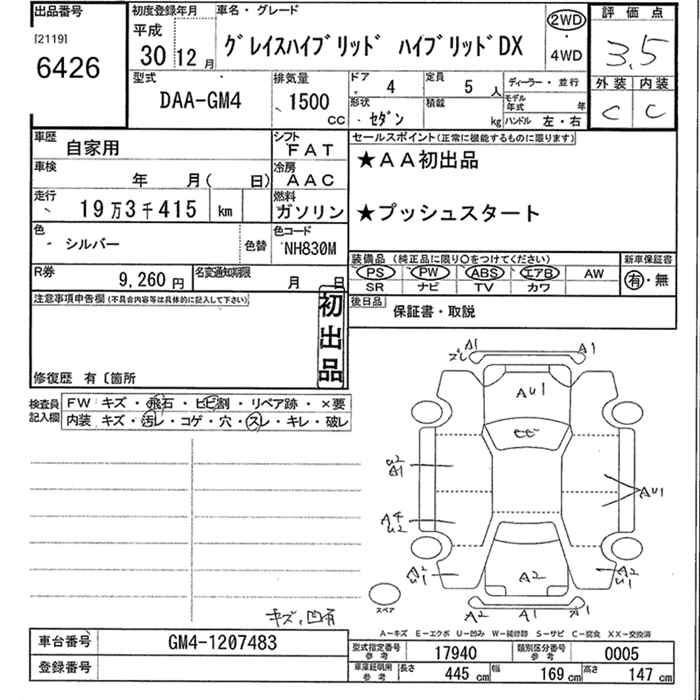 出品番号 初度登録年月 車名・グレード 評価点
[2119] 平成 2WD
6426 30 12月 グレイスハイブリッド ハイブリッドDX ・ 3.5
4WD
型式 排気量 ドア 4 定員 5人 ディーラー・並行 外装 内装
DAA-GM4 1500cc 形状 セダン 積載 kg モデル年式 年 C C
ハンドル 左・右
車歴 自家用 シフト FAT セールスポイント(正常に機能するものに限ります)
車検 年 月( 日) 冷房 AAC ★AA初出品
走行 19万3千415 km 燃料 ガソリン ★プッシュスタート
色 シルバー 色替 色コード NH830M
装備品 (純正品に限り○をつけてください) 新車保証書
PS PW ABS エアB AW 有・無
SR ナビ TV カワ
R券 9,260円 名変通知期限 月 日
後日品 保証書・取説
注意事項申告欄(不具合内容等は具体的に記入して下さい)
初出品
修復歴 有〔箇所
検査員記入欄 FW キズ・飛石・ヒビ割・リペア跡・×要
内装 キズ・汚レ・コゲ・穴・スレ・キレ・破レ
A1 A1
ズレ
AU1
ヒビ
U2
A1
AU1
A4
U2
A2
U1
A2
U1
A2
A2 A1 A1
スペア
キズ、凹有
A－キズ E－エクボ U－凹み W－補修跡 S－サビ C－腐食 XX－交換済
車台番号 GM4-1207483
登録番号
型式指定番号 参考 17940 類別区分番号 参考 0005
車庫証明用 参考 長さ 445cm 幅 169cm 高さ 147cm